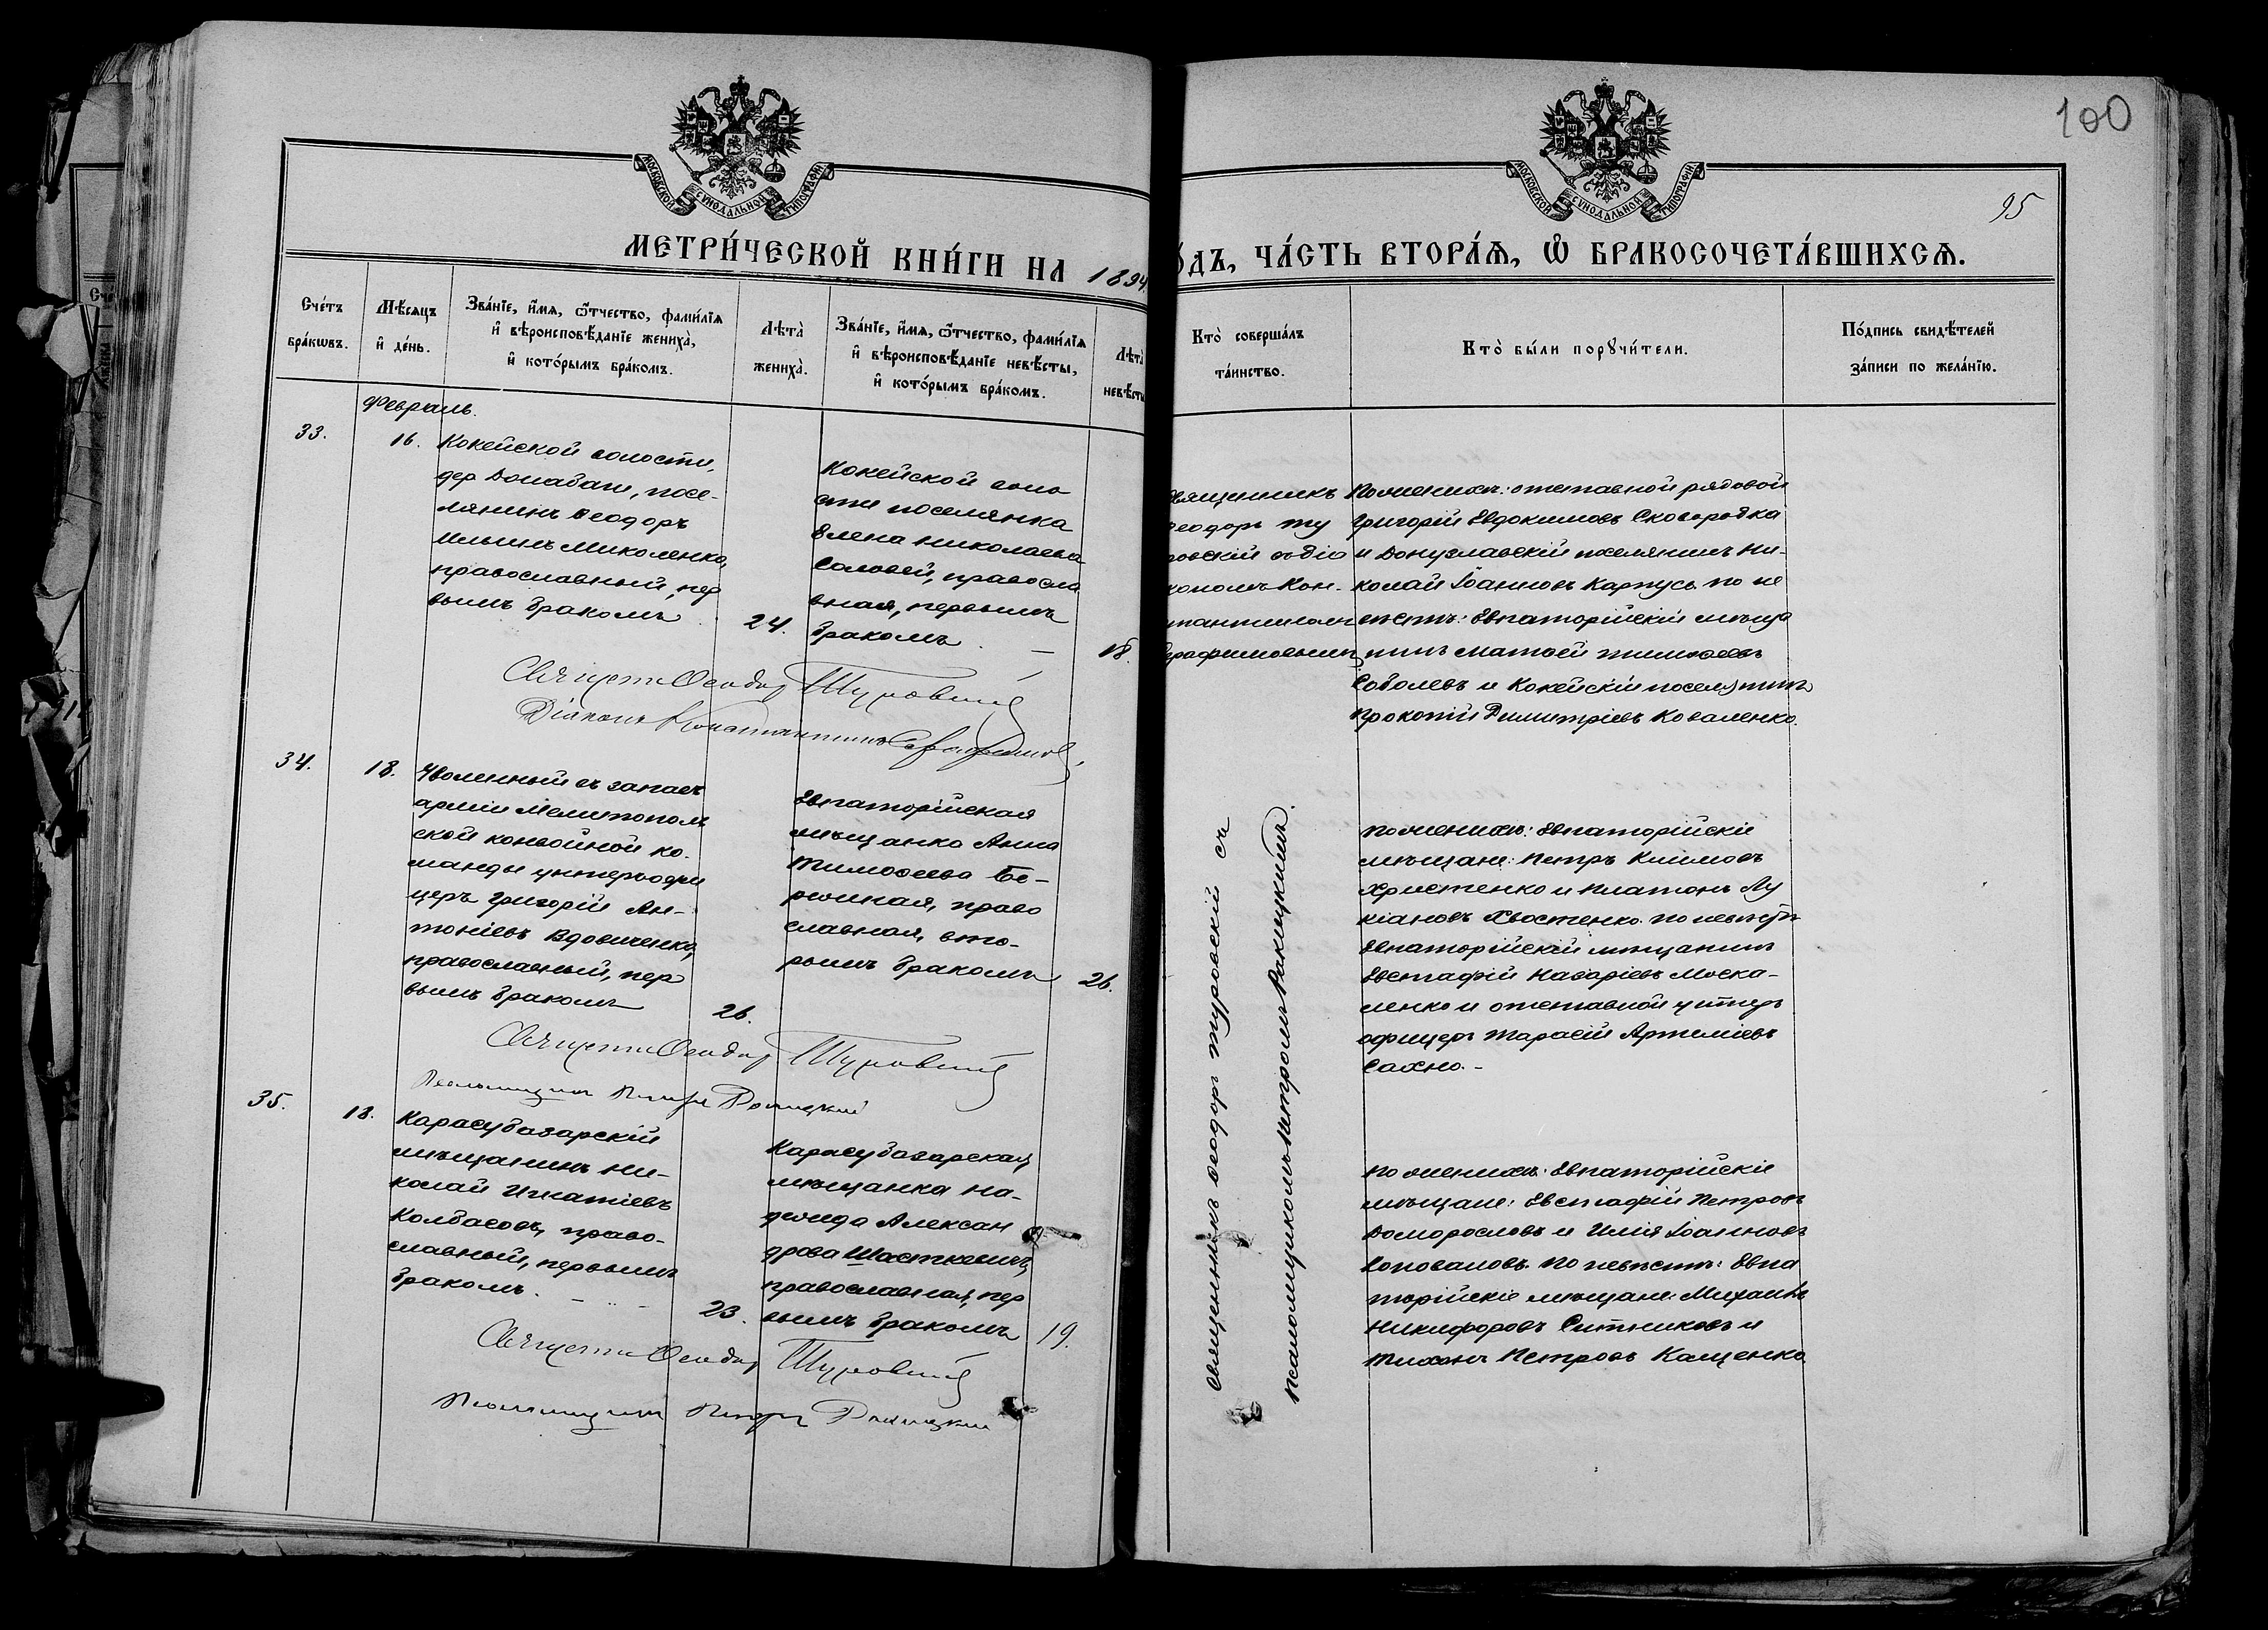 100
95
МОСКОВСКОЙ СѴНОДАЛЬНОЙ ТИПОГРАФІИ
МОСКОВСКОЙ СѴНОДАЛЬНОЙ ТИПОГРАФІИ
МЕТРИ́ЧЕСКОЙ КНИ́ГИ НА 1894
О́ДЪ, ЧА́СТЬ ВТОРА́Ѧ, Ѽ БРАКОСОЧЕТА́ВШИХСѦ.
Сче́тъ бра́кѡвъ.
Мѣ́сѧцъ и҆ де́нь.
Зва́нїе, и҆́мѧ, ѻ҆́тчество, фами́лїѧ
и҆ вѣроисповѣ́данїе жениха̀,
и҆ кото́рымъ бра́комъ.
Лѣта̀ жениха̀.
Зва́нїе, и҆́мѧ, ѻ҆́тчество, фами́лїѧ
и҆ вѣроисповѣ́данїе невѣ́сты,
и҆ кото́рымъ бра́комъ.
Лѣта̀ невѣ́сты
Кто̀ соверша́лъ
та́инство.
Кто̀ бы́ли порꙋчи́тели.
По́дпись свидѣ́телей
за́писи по жела́нїю.
Февраль.
33.
16.
Кокейской волости,
дер Донабаш, посе-
лянинъ Ѳеодоръ
Ильинъ Миколенко,
православный, пер
вымъ бракомъ
24.
Кокейской воло
сти поселянка
Елена Николаева
Соловей, правосла
вная, первымъ
бракомъ. —
18.
Священникъ
Ѳеодоръ Ту
ровскій съ діа
кономъ Кон-
стантиномъ
Серафимовымъ
По женихѣ: отставной рядовой
Григорій Евдокимовъ Сковородка
и Донузлавскій поселянинъ Ни-
колай Іоанновъ Карпусь. По не
вѣстѣ: Евпаторійскій мѣща
нинъ Матѳей Тимоѳеевъ
Соболевъ и Кокейскій поселянинъ
Прокопій Димитріевъ Коваленко.
Священникъ Ѳеодоръ Туровскій
Діаконъ Константинъ Серафимовъ
34.
18.
Уволенный въ запасъ
арміи Мелитополь
ской конвойной ко-
манды унтеръ-офи
церъ Григорій Ан-
тоніевъ Вдовиченко,
православный, пер
вымъ бракомъ
26.
Евпаторійская
мѣщанка Анна
Тимоѳеева Бе-
режная, право
славная, вто-
рымъ бракомъ
26.
Священникъ Ѳеодоръ Туровскій съ
псаломщикомъ Петромъ Ракицкимъ.
По женихѣ: Евпаторійскіе
мѣщане: Петръ Климовъ
Христенко и Платонъ Лу
кіановъ Хвостенко. По невѣстѣ
Евпаторійскій мѣщанинъ
Евстафій Назаріевъ Моска-
ленко и отставной унтеръ
офицеръ Тарасій Артеміевъ
Сахно. -
Священникъ Ѳеодоръ Туровскій
Псаломщикъ Петръ Ракицкій
35.
18.
Карасубазарскій
мѣщанинъ Ни-
колай Игнатіевъ
Колбасовъ, право-
славный, первымъ
бракомъ.
23.
Карасубазарская
мѣщанка На-
дежда Алексан
дрова Шасткевичъ,
православная, пер
вымъ бракомъ
19.
По женихѣ: Евпаторійскіе
мѣщане: Евстафій Петровъ
Доморословъ и Илія Іоанновъ
Коноваловъ. По невѣстѣ: Евпа
торійскіе мѣщане: Михаилъ
Никифоровъ Ситниковъ и
Тихонъ Петровъ Кащенко
Священникъ Ѳеодоръ Туровскій
Псаломщикъ Петръ Ракицкій